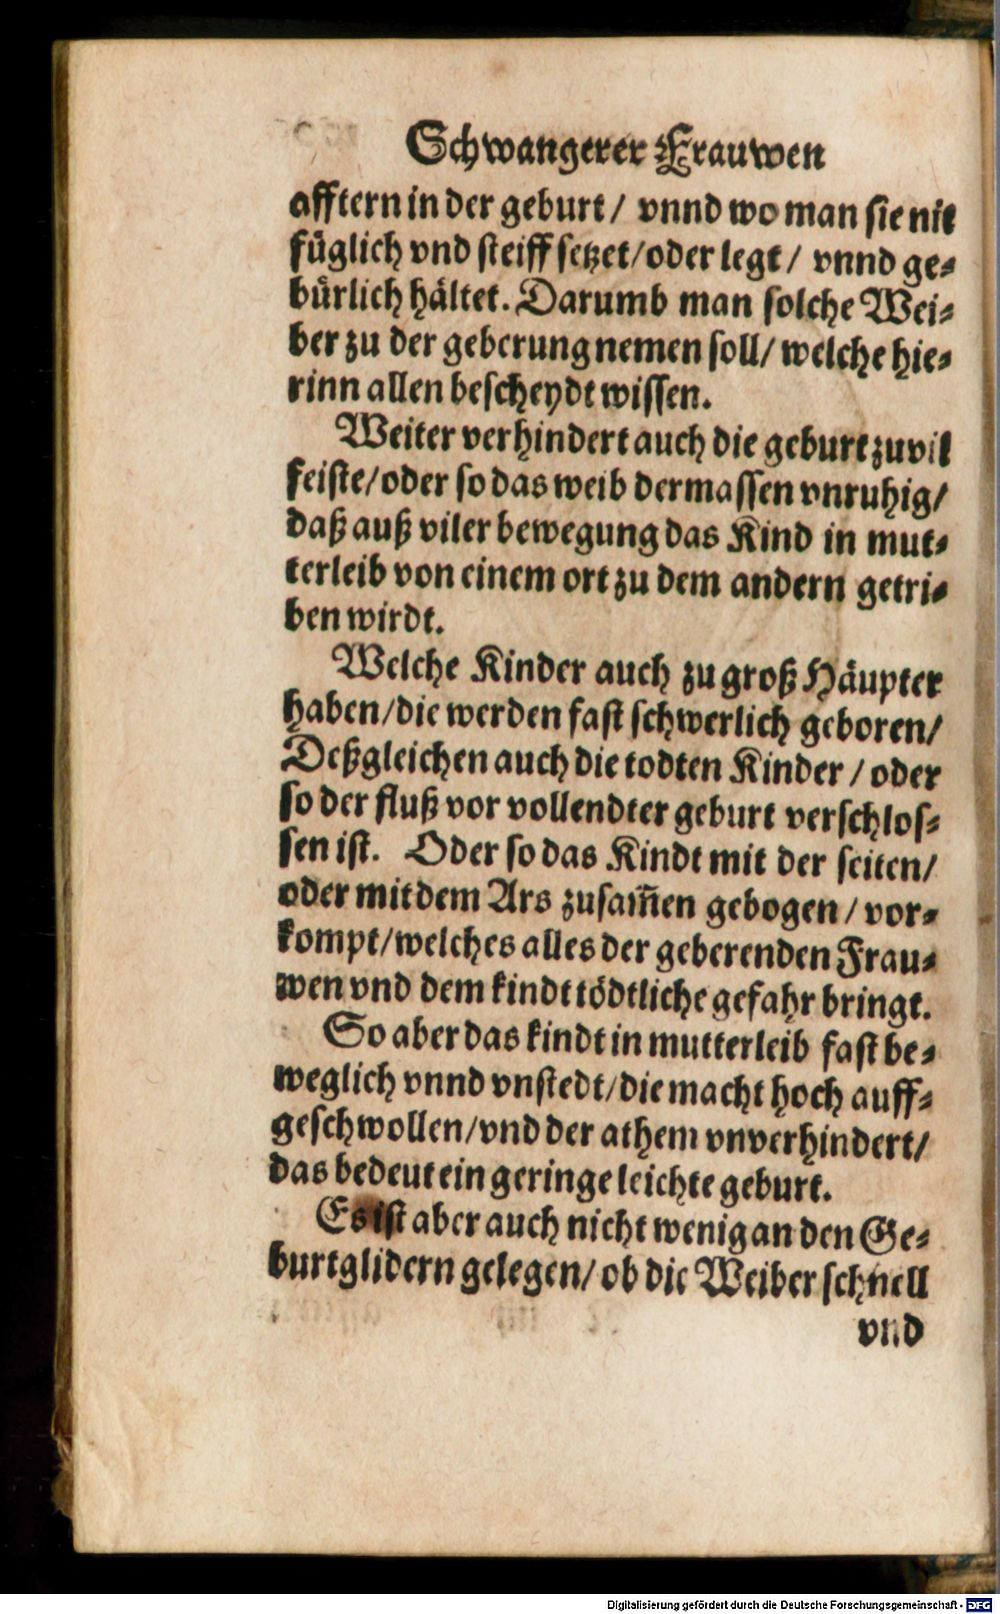 Schwangerer Frauwen
afftern in der geburt / vnnd wo man sie nit
füglich vnd steiff setzet/oder legt / vnnd ge⸗
bürlich hältet. Darumb man solche Wei⸗
ber zu der geberung nemen soll/ welche hie⸗
rinn allen bescheydt wissen.
Weiter verhindert auch die geburt zuvil
feiste/oder so das weib dermassen vnruhig/
daß auß viler bewegung das Kind in mut⸗
terleib von einem ort zu dem andern getri⸗
ben wirdt.
Welche Kinder auch zu groß Häupter
haben/die werden fast schwerlich geboren/
Deßgleichen auch die todten Kinder / oder
so der fluß vor vollendter geburt verschlos⸗
sen ist. Oder so das Kindt mit der seiten/
oder mit dem Ars zusam̅en gebogen / vor⸗
kompt/welches alles der geberenden Frau⸗
wen vnd dem kindt tödtliche gefahr bringt.
So aber das kindt in mutterleib fast be⸗
weglich vnnd vnstedt/die macht hoch auff⸗
geschwollen/vnd der athem vnverhindert/
das bedeut ein geringe leichte geburt.
Es ist aber auch nicht wenig an den Ge⸗
burtglidern gelegen/ ob die Weiber schnell
vnd
Digitalisierung gefördert durch die Deutsche Forschungsgemeinschaft - DFG